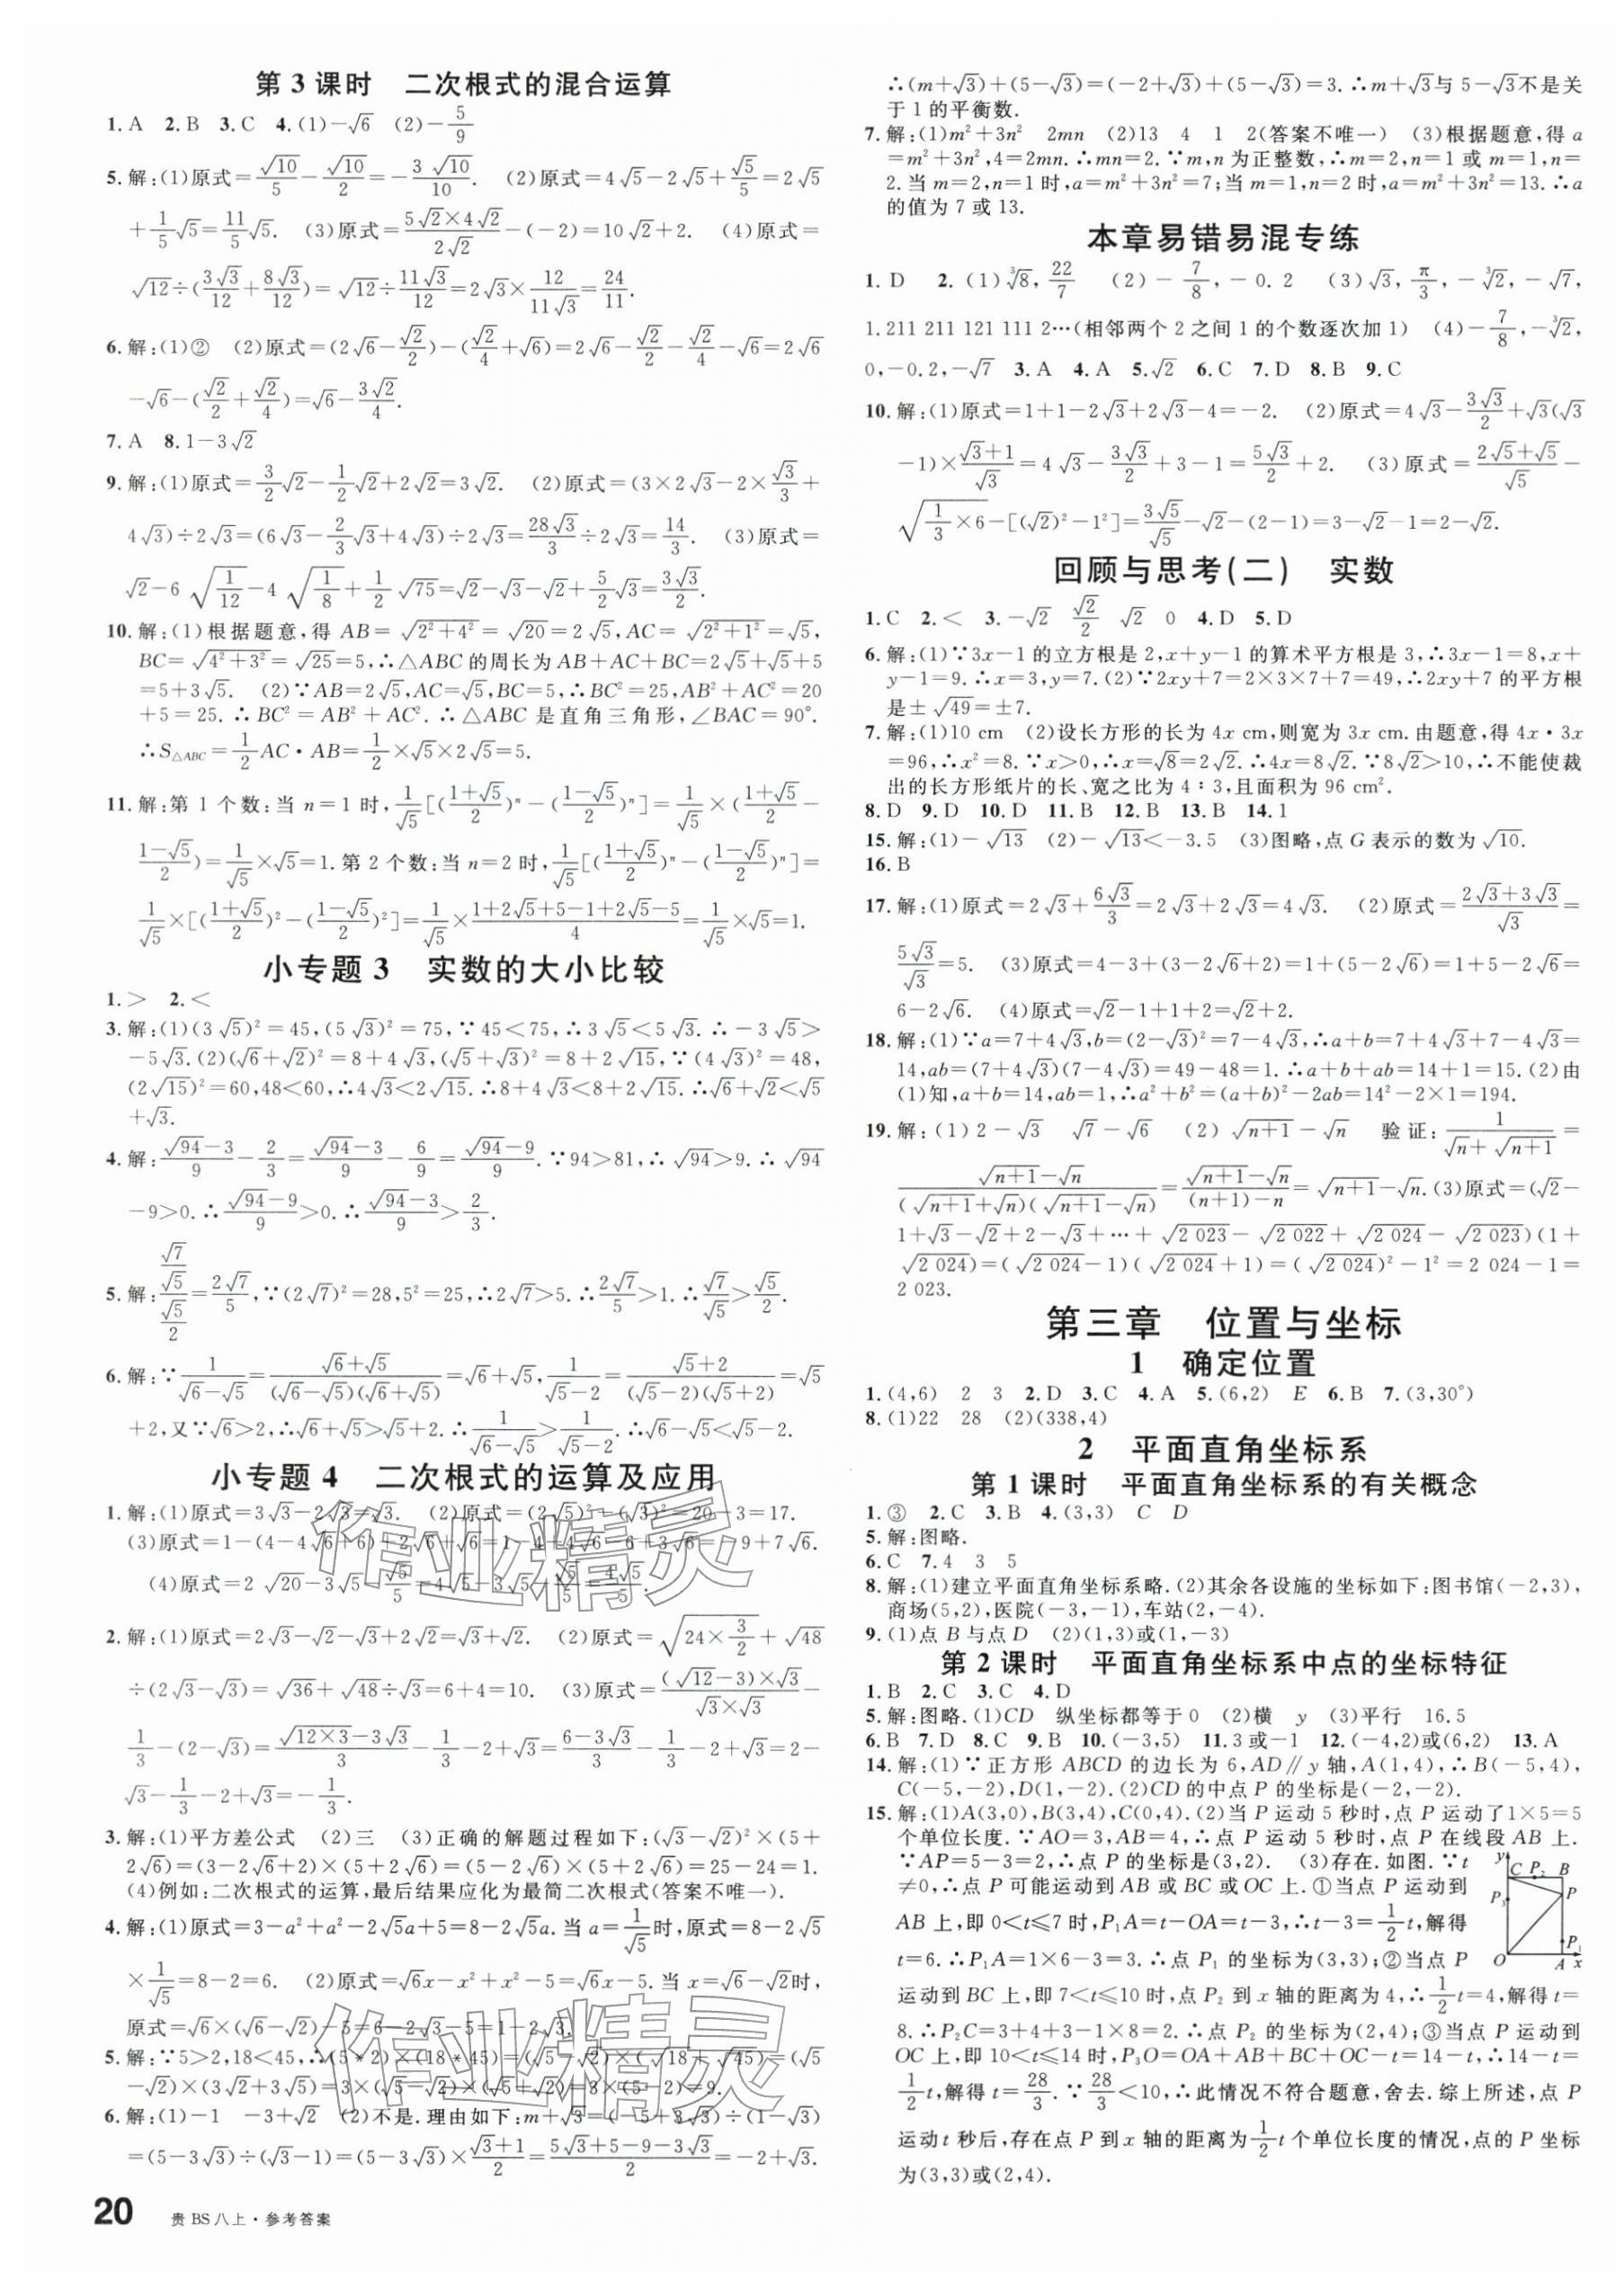 第 3 课时　二次根式的混合运算
1. A　2. B　3. C　4. (1)−√6　(2)−5/9
5. 解:(1)原式=√10/5−√10/2=−3√10/10.　(2)原式=4√5−2√5+√5/5=2√5
+1/5√5=11/5√5.　(3)原式=(5√2×4√2)/(2√2)−(−2)=10√2+2.　(4)原式=
√12÷(3√3/12+8√3/12)=√12÷11√3/12=2√3×12/(11√3)=24/11.
6. 解:(1)②　(2)原式=(2√6−√2/2)−(√2/4+√6)=2√6−√2/2−√2/4−√6=2√6
−√6−(√2/2+√2/4)=√6−3√2/4.
7. A　8. 1−3√2
9. 解:(1)原式=3/2√2−1/2√2+2√2=3√2.　(2)原式=(3×2√3−2×√3/3+
4√3)÷2√3=(6√3−2/3√3+4√3)÷2√3=28√3/3÷2√3=14/3.　(3)原式=
√2−6√(1/12)−4√(1/8)+1/2√75=√2−√3−√2+5/2√3=3√3/2.
10. 解:(1)根据题意,得 AB=√(2²+4²)=√20=2√5,AC=√(2²+1²)=√5,
BC=√(4²+3²)=√25=5,∴△ABC 的周长为 AB+AC+BC=2√5+√5+5
=5+3√5.　(2)∵AB=2√5,AC=√5,BC=5,∴BC²=25,AB²+AC²=20
+5=25.∴BC²=AB²+AC².∴△ABC 是直角三角形,∠BAC=90°.
∴S△ABC=1/2AC·AB=1/2×√5×2√5=5.
11. 解:第 1 个数:当 n=1 时,1/√5[((1+√5)/2)ⁿ−((1−√5)/2)ⁿ]=1/√5×((1+√5)/2−
(1−√5)/2)=1/√5×√5=1.第 2 个数:当 n=2 时,1/√5[((1+√5)/2)ⁿ−((1−√5)/2)ⁿ]=
1/√5×[((1+√5)/2)²−((1−√5)/2)²]=1/√5×(1+2√5+5−1+2√5−5)/4=1/√5×√5=1.
小专题 3　实数的大小比较
1. >　2. <
3. 解:(1)(3√5)²=45,(5√3)²=75,∵45<75,∴3√5<5√3.∴−3√5>
−5√3.(2)(√6+√2)²=8+4√3,(√5+√3)²=8+2√15,∵(4√3)²=48,
(2√15)²=60,48<60,∴4√3<2√15.∴8+4√3<8+2√15.∴√6+√2<√5
+√3.
4. 解:(√94−3)/9−2/3=(√94−3)/9−6/9=(√94−9)/9.∵94>81,∴√94>9.∴√94
−9>0.∴(√94−9)/9>0.∴(√94−3)/9>2/3.
5. 解:(√7/√5)/(√5/2)=2√7/5,∵(2√7)²=28,5²=25,∴2√7>5.∴2√7/5>1.∴√7/√5>√5/2.
6. 解:∵1/(√6−√5)=(√6+√5)/((√6−√5)(√6+√5))=√6+√5,1/(√5−2)=(√5+2)/((√5−2)(√5+2))=√5
+2,又∵√6>2,∴√6+√5>√5+2.∴1/(√6−√5)>1/(√5−2).∴√6−√5<√5−2.
小专题 4　二次根式的运算及应用
1. 解:(1)原式=3√3−2√3=√3.　(2)原式=(2√5)²−(√3)²=20−3=17.
(3)原式=1−(4−4√6+6)+2√6+√6=1−4+4√6−6+3√6=−9+7√6.
(4)原式=2√20−3√5−√5/5=4√5−3√5−√5/5=4√5/5.
2. 解:(1)原式=2√3−√2−√3+2√2=√3+√2.　(2)原式=√(24×3/2)+√48
÷(2√3−√3)=√36+√48÷√3=6+4=10.　(3)原式=((√12−3)×√3)/(√3×√3)−
1/3−(2−√3)=(√(12×3)−3√3)/3−1/3−2+√3=(6−3√3)/3−1/3−2+√3=2−
√3−1/3−2+√3=−1/3.
3. 解:(1)平方差公式　(2)三　(3)正确的解题过程如下:(√3−√2)²×(5+
2√6)=(3−2√6+2)×(5+2√6)=(5−2√6)×(5+2√6)=25−24=1.
(4)例如:二次根式的运算,最后结果应化为最简二次根式(答案不唯一).
4. 解:(1)原式=3−a²+a²−2√5a+5=8−2√5a.当 a=1/√5时,原式=8−2√5
×1/√5=8−2=6.　(2)原式=√6x−x²+x²−5=√6x−5.当 x=√6−√2时,
原式=√6×(√6−√2)−5=6−2√3−5=1−2√3.
5. 解:∵5>2,18<45,∴(5*2)×(18*45)=(√5−√2)×(√18+√45)=(√5
−√2)×(3√2+3√5)=3×(√5−√2)×(√5+√2)=3×(5−2)=9.
6. 解:(1)−1　−3+√2　(2)不是.理由如下:m+√3=(−5+3√3)÷(1−√3)
=(5−3√3)÷(√3−1)=(5−3√3)×(√3+1)/2=(5√3+5−9−3√3)/2=−2+√3.
20　贵 BS 八上·参考答案
∴(m+√3)+(5−√3)=(−2+√3)+(5−√3)=3.∴m+√3与 5−√3不是关
于 1 的平衡数.
7. 解:(1)m²+3n²　2mn　(2)13　4　1　2(答案不唯一)　(3)根据题意,得 a
=m²+3n²,4=2mn.∴mn=2.∵m,n 为正整数,∴m=2,n=1 或 m=1,n=
2.当 m=2,n=1 时,a=m²+3n²=7;当 m=1,n=2 时,a=m²+3n²=13.∴a
的值为 7 或 13.
本章易错易混专练
1. D　2. (1)³√8,22/7　(2)−7/8,−0.2　(3)√3,π/3,−³√2,−√7,
1.211 211 121 111 2…(相邻两个 2 之间 1 的个数逐次加 1)　(4)−7/8,−³√2,
0,−0.2,−√7　3. A　4. A　5. √2　6. C　7. D　8. B　9. C
10. 解:(1)原式=1+1−2√3+2√3−4=−2.　(2)原式=4√3−3√3/2+√3(√3
−1)×(√3+1)/√3=4√3−3√3/2+3−1=5√3/2+2.　(3)原式=(2√5+√5)/√5−
√(1/3×6)−[(√2)²−1²]=3√5/√5−√2−(2−1)=3−√2−1=2−√2.
回顾与思考(二)　实数
1. C　2. <　3. −√2　√2/2　√2　0　4. D　5. D
6. 解:(1)∵3x−1 的立方根是 2,x+y−1 的算术平方根是 3,∴3x−1=8,x+
y−1=9.∴x=3,y=7.(2)∵2xy+7=2×3×7+7=49,∴2xy+7 的平方根
是±√49=±7.
7. 解:(1)10 cm　(2)设长方形的长为 4x cm,则宽为 3x cm.由题意,得 4x·3x
=96,∴x²=8.∵x>0,∴x=√8=2√2.∴4x=8√2.∵8√2>10,∴不能使裁
出的长方形纸片的长、宽之比为 4∶3,且面积为 96 cm².
8. D　9. D　10. D　11. B　12. B　13. B　14. 1
15. 解:(1)−√13　(2)−√13<−3.5　(3)图略,点 G 表示的数为√10.
16. B
17. 解:(1)原式=2√3+6√3/3=2√3+2√3=4√3.　(2)原式=(2√3+3√3)/√3=
5√3/√3=5.　(3)原式=4−3+(3−2√6+2)=1+(5−2√6)=1+5−2√6=
6−2√6.　(4)原式=√2−1+1+2=√2+2.
18. 解:(1)∵a=7+4√3,b=(2−√3)²=7−4√3,∴a+b=7+4√3+7−4√3=
14,ab=(7+4√3)(7−4√3)=49−48=1.∴a+b+ab=14+1=15.(2)由
(1)知,a+b=14,ab=1,∴a²+b²=(a+b)²−2ab=14²−2×1=194.
19. 解:(1)2−√3　√7−√6　(2)√(n+1)−√n　验证:1/(√n+√(n+1))=
(√(n+1)−√n)/((√(n+1)+√n)(√(n+1)−√n))=(√(n+1)−√n)/((n+1)−n)=√(n+1)−√n.(3)原式=(√2−
1+√3−√2+2−√3+…+√2 023−√2 022+√2 024−√2 023)(1+
√2 024)=(√2 024−1)(√2 024+1)=(√2 024)²−1²=2 024−1=
2 023.
第三章　位置与坐标
1　确定位置
1. (4,6)　2　3　2. D　3. C　4. A　5. (6,2)　E　6. B　7. (3,30°)
8. (1)22　28　(2)(338,4)
2　平面直角坐标系
第 1 课时　平面直角坐标系的有关概念
1. ③　2. C　3. B　4. (3,3)　C　D
5. 解:图略.
6. C　7. 4　3　5
8. 解:(1)建立平面直角坐标系略.(2)其余各设施的坐标如下:图书馆(−2,3),
商场(5,2),医院(−3,−1),车站(2,−4).
9. (1)点 B 与点 D　(2)(1,3)或(1,−3)
第 2 课时　平面直角坐标系中点的坐标特征
1. B　2. C　3. C　4. D
5. 解:图略.(1)CD　纵坐标都等于 0　(2)横　y　(3)平行　16.5
6. B　7. D　8. C　9. B　10. (−3,5)　11. 3 或−1　12. (−4,2)或(6,2)　13. A
14. 解:(1)∵正方形 ABCD 的边长为 6,AD∥y 轴,A(1,4),∴B(−5,4),
C(−5,−2),D(1,−2).(2)CD 的中点 P 的坐标是(−2,−2).
15. 解:(1)A(3,0),B(3,4),C(0,4).(2)当 P 运动 5 秒时,点 P 运动了1×5=5
个单位长度.∵AO=3,AB=4,∴点 P 运动 5 秒时,点 P 在线段 AB 上.
∵AP=5−3=2,∴点 P 的坐标是(3,2).　(3)存在.如图.∵t
≠0,∴点 P 可能运动到 AB 或 BC 或 OC 上.①当点 P 运动到
AB 上,即 0<t≤7 时,P₁A=t−OA=t−3,∴t−3=1/2t,解得
t=6.∴P₁A=1×6−3=3.∴点 P₁ 的坐标为(3,3);②当点 P
运动到 BC 上,即 7<t≤10 时,点 P₂ 到 x 轴的距离为 4,∴1/2t=4,解得 t=
8.∴P₂C=3+4+3−1×8=2.∴点 P₂ 的坐标为(2,4);③当点 P 运动到
OC 上时,即 10<t≤14 时,P₃O=OA+AB+BC+OC−t=14−t,∴14−t=
1/2t,解得 t=28/3.∵28/3<10,∴此情况不符合题意,舍去.综上所述,点 P
运动 t 秒后,存在点 P 到 x 轴的距离为1/2t 个单位长度的情况,点的 P 坐标
为(3,3)或(2,4).
y
C　P₂　B
P₃　P
P₁
O　A　x
作业精灵
作业精灵